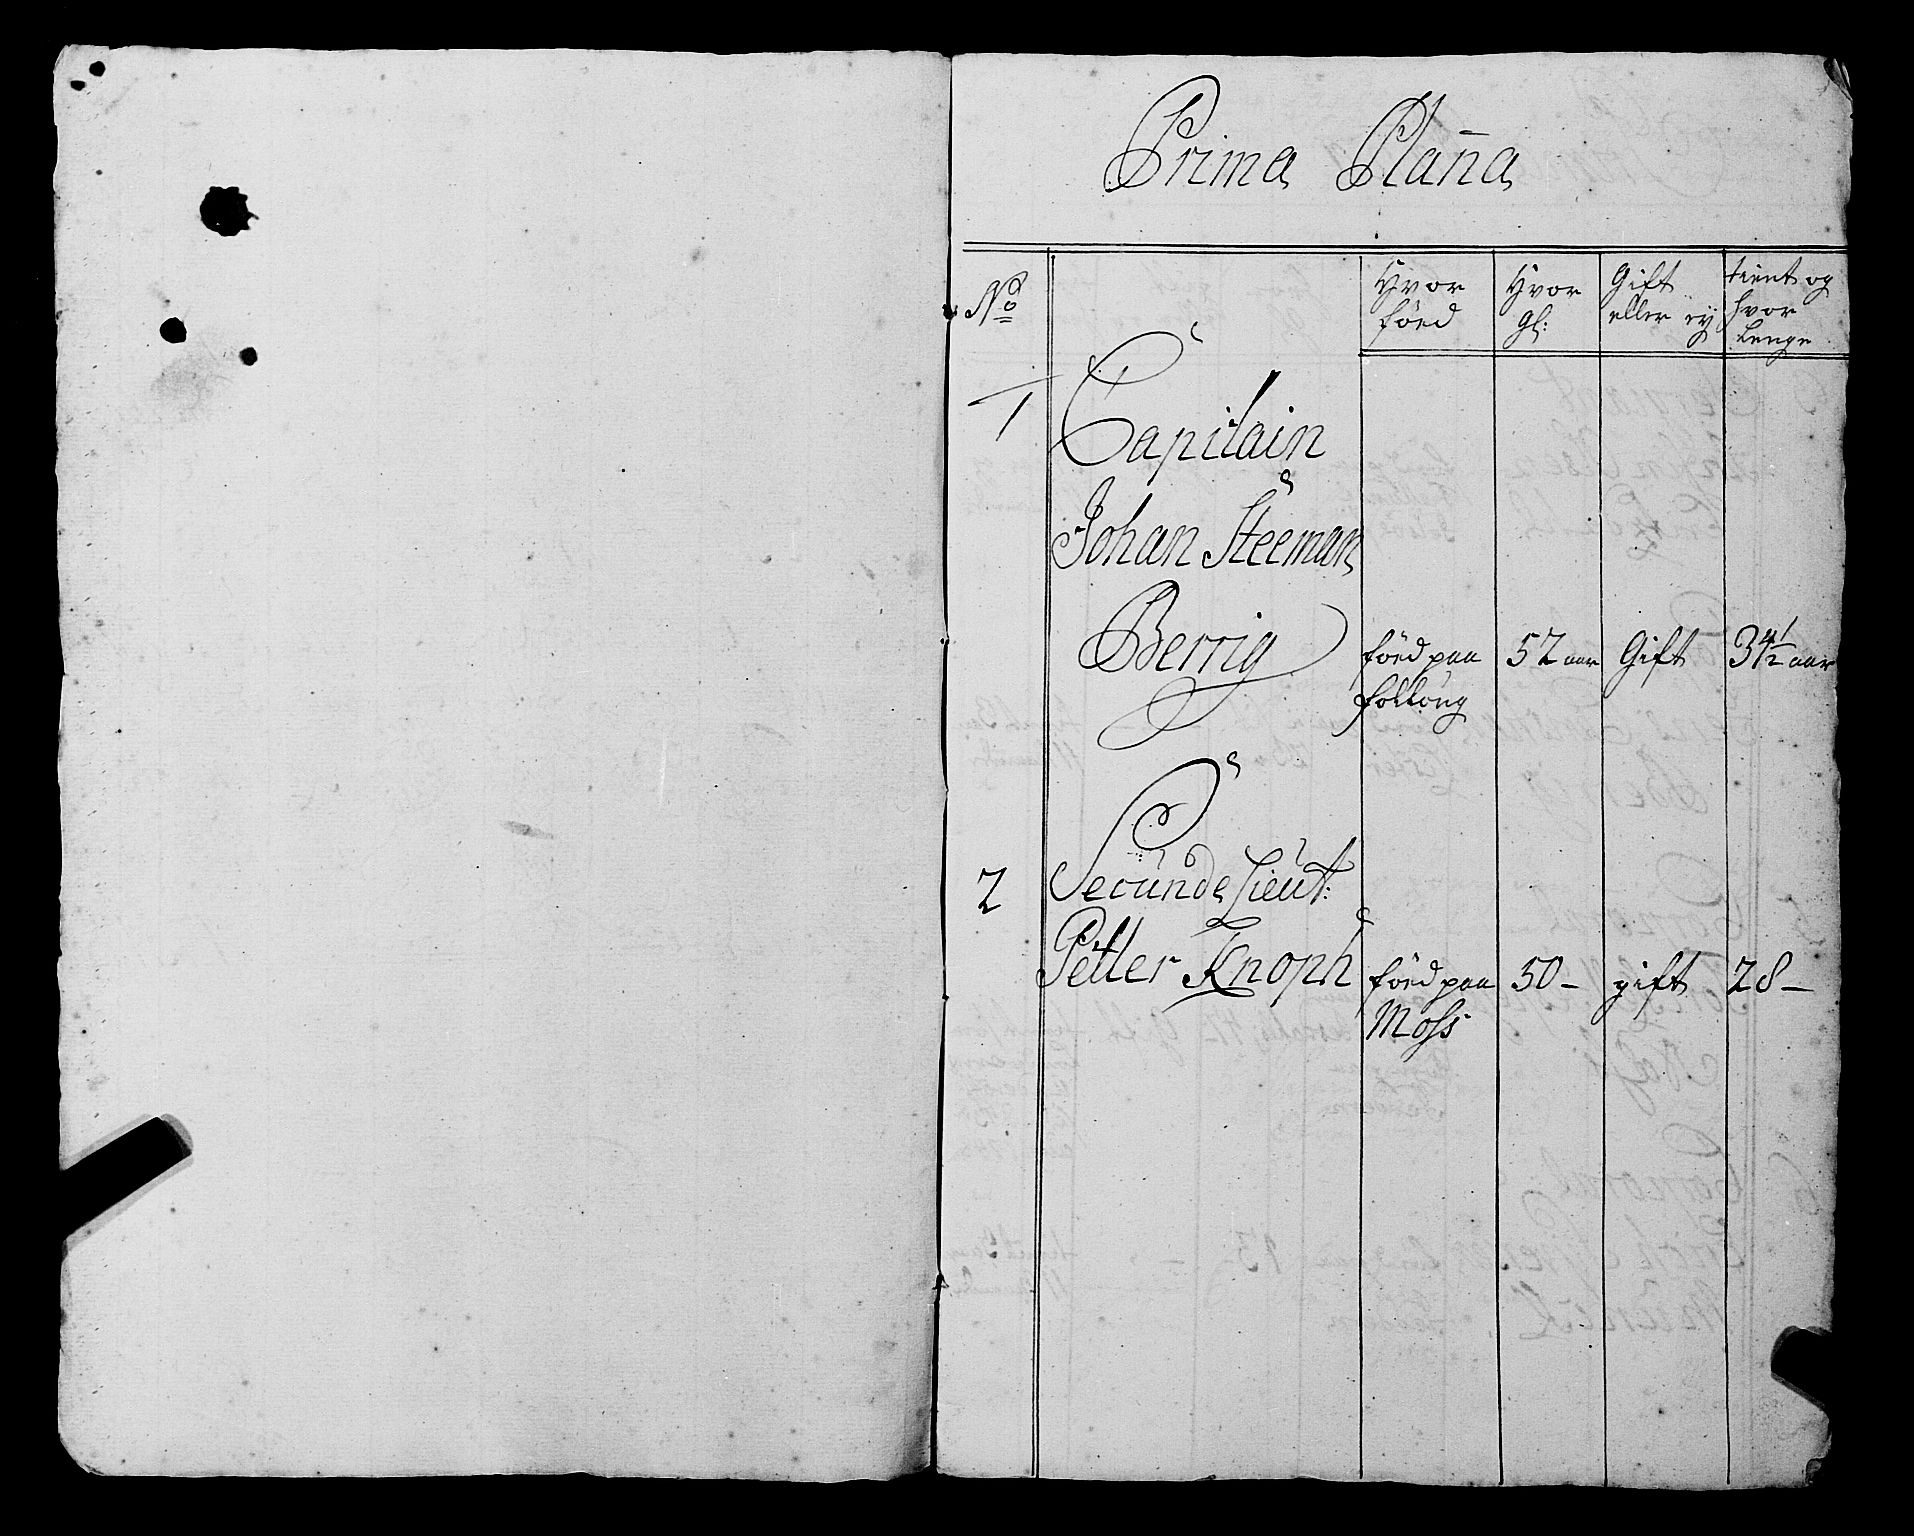 Prima Plañа
No
Hvor föed
Hvor gl:
Gift eller ey
tient og hvor Lenge
1
Capitain
Johan Steeman
Berrig
föed paa
52 aar
Gift
34 1/2 aar
2
Secunde Lieut:
Petter Knoph
föed paa
50 –
gift
28 –
Moss